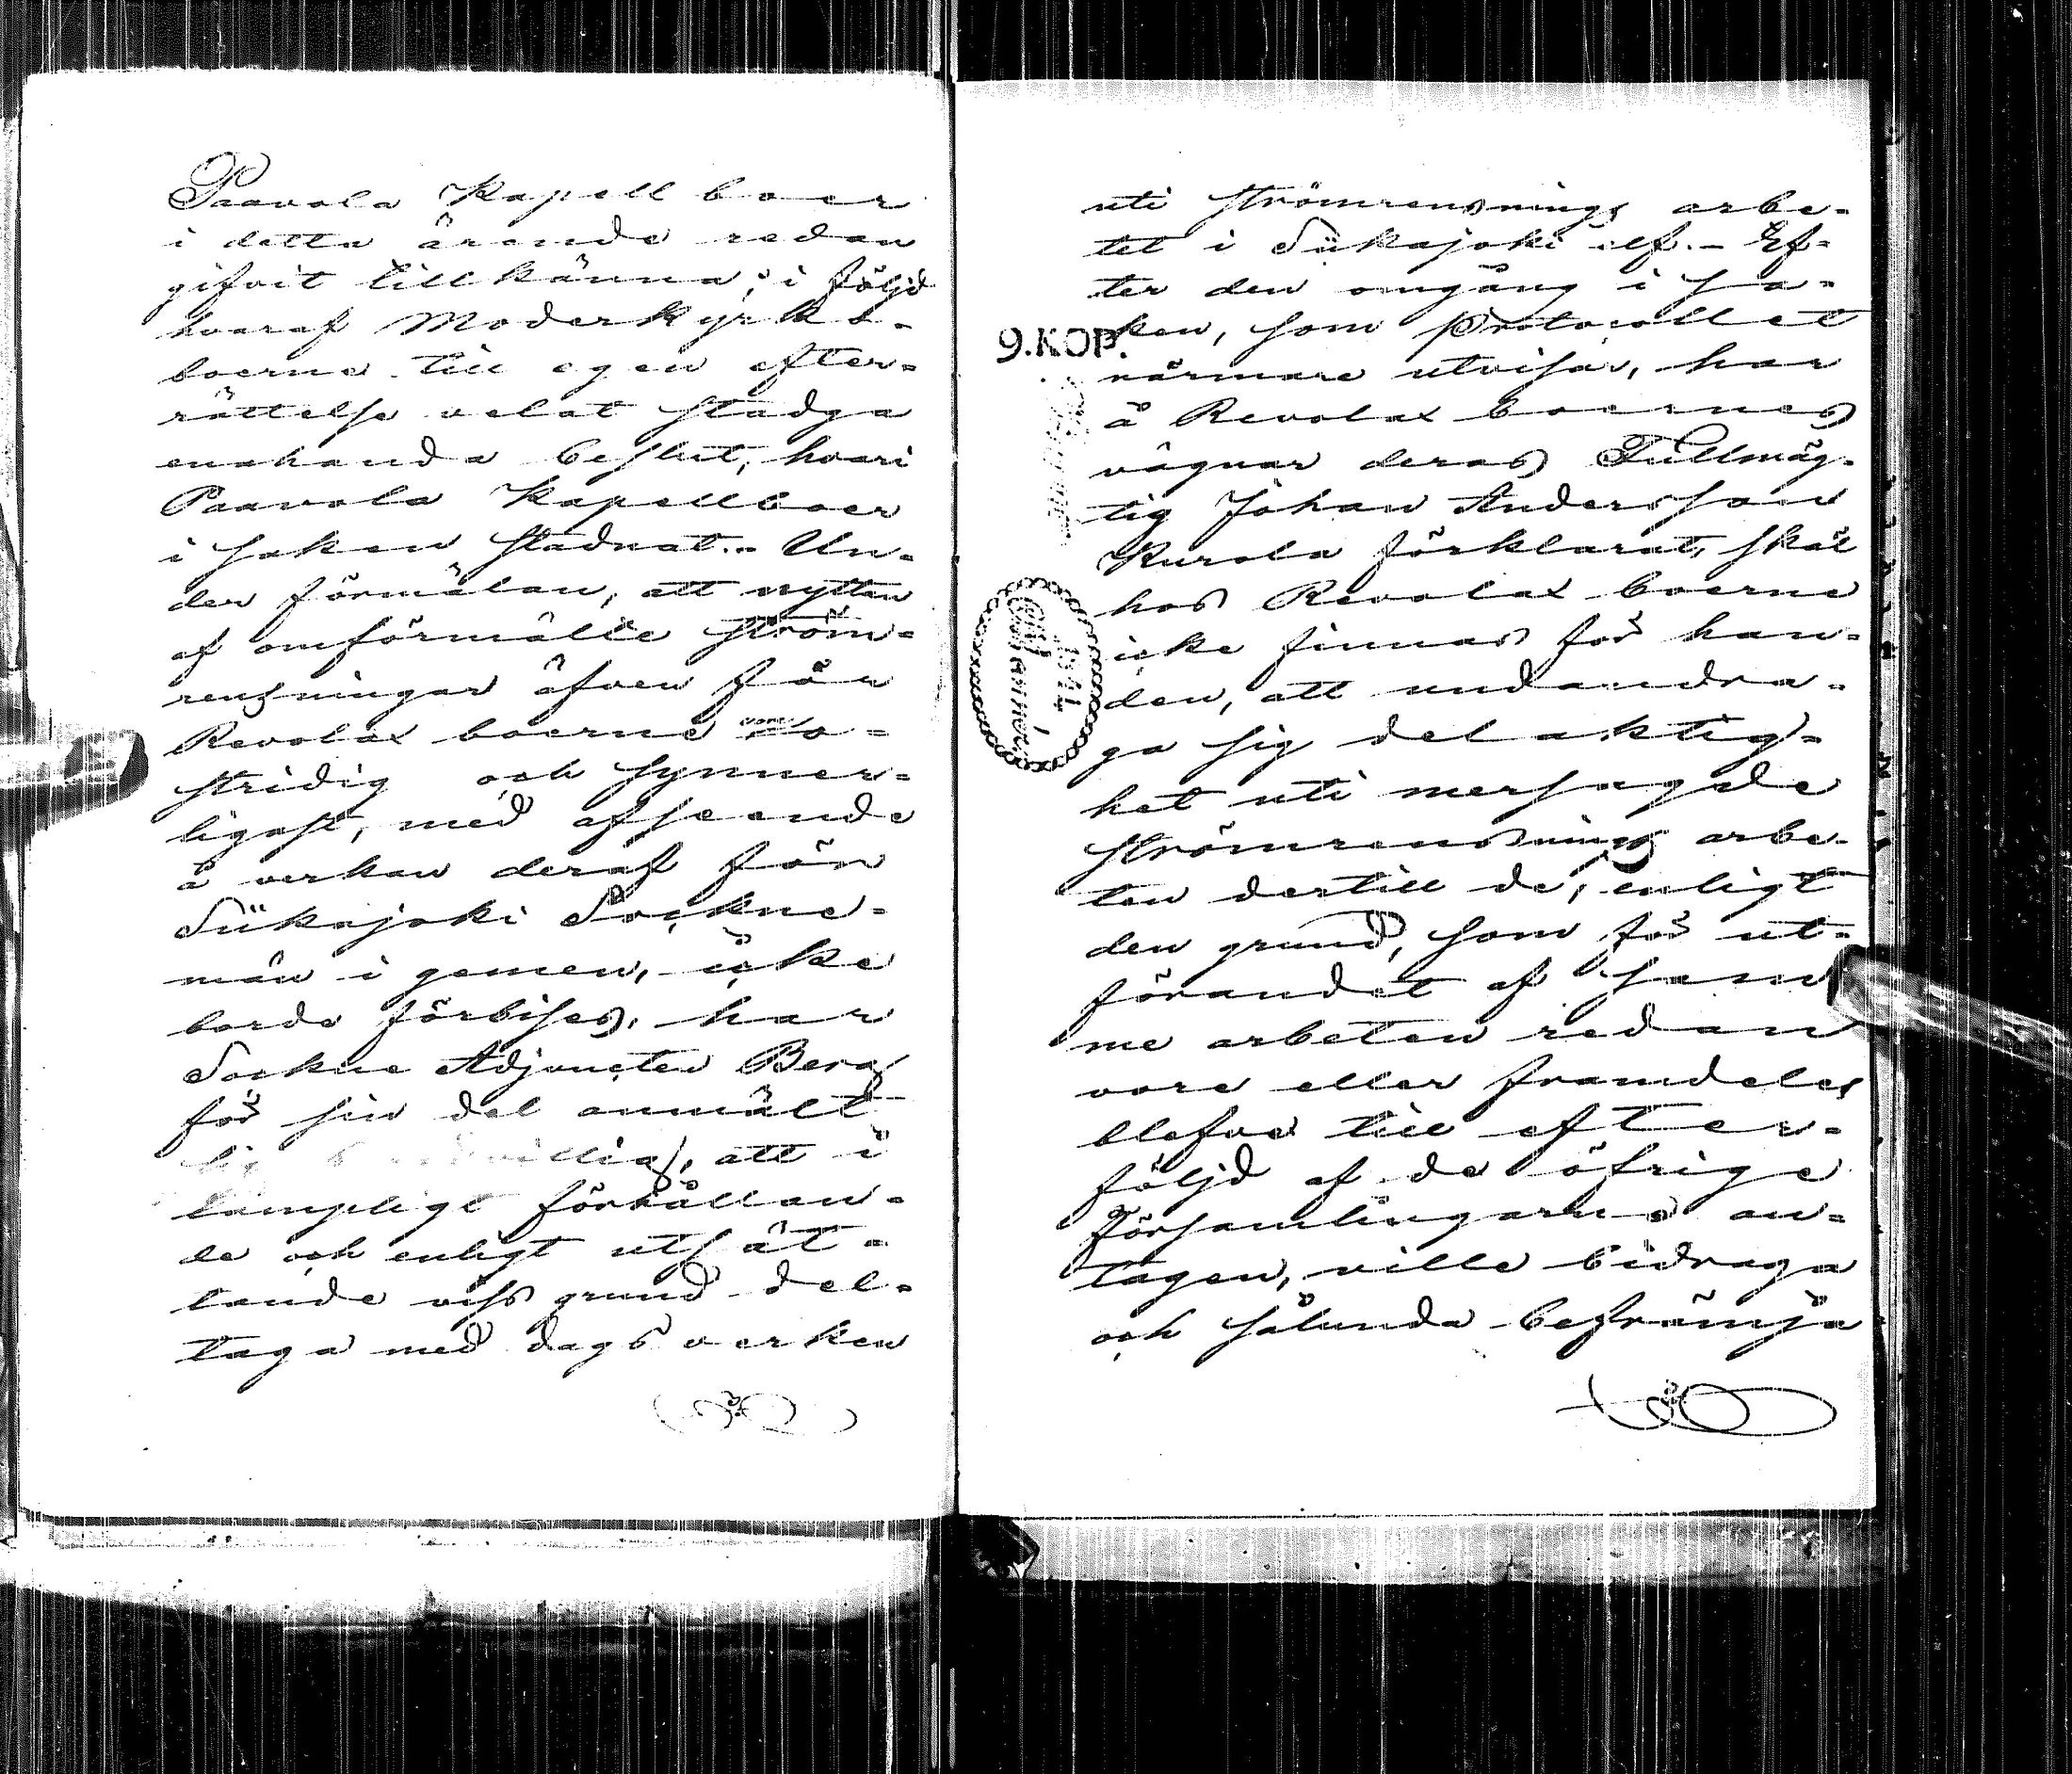 Paavola Kapell boer
i detta ärende redan
gifvit tillkänna; i följd
hvaraf Moderkyrko-
boerne till egen efter-
rättelse velat stadga
enahanda beslut, hvari
Paavola Kapellboer
i saken stadnat.- Un-
der förmälan, att nyttan
af omförmälte ström-
rensningar äfven för
Revolax boerne vore o-
stridig och synner-
ligast, med afseende
å verkan deraf för
Siikajoki Sockne-
män i gemen, icke
borde förbises, har
Sockne Adjuncten Berg
för sin del anmält
sig villig, att i
lämpligt förhållan-
de och enligt utsät-
tande viss grund del-
taga med dagsverken
uti strömrensnings arbe-
tet i Siikajoki elf.- Ef-
ter den omgång i sa-
ken, som Protocollet
närmare utvisar, har
å Revolax boernes
vägnar deras Fullmäg-
tig Johan Andersson
Kurola förklarat, skäl
hos Revolax boerne
icke finnas för han-
den, att undandra-
ga sig delaktig-
het uti mersagde
strömrensnings arbe-
ten dertill de, enligt
den grund, som för ut-
förandet af sam
me arbeten redan
vore eller framdeles
blefve till efter-
följd af de öfrige
Församlingarne an-
tagen, ville bidraga
och sålunda befrämja
9.KOP.
1844